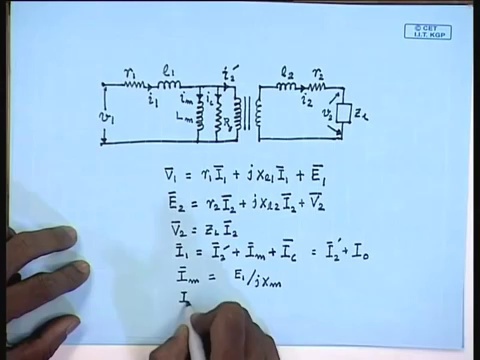 © CET
I.I.T. KGP
r₁ l₁ i₂′ l₂ r₂
i₁ iₘ i_c i₂
v₁ Lₘ v₂ Z_L
V̄₁ = r₁ Ī₁ + j x_l1 Ī₁ + Ē₁
Ē₂ = r₂ Ī₂ + j x_l2 Ī₂ + V̄₂
V̄₂ = Z_L Ī₂
Ī₁ = Ī₂′ + Īₘ + Ī_c = Ī₂′ + I₀
Īₘ = E₁/jxₘ
I